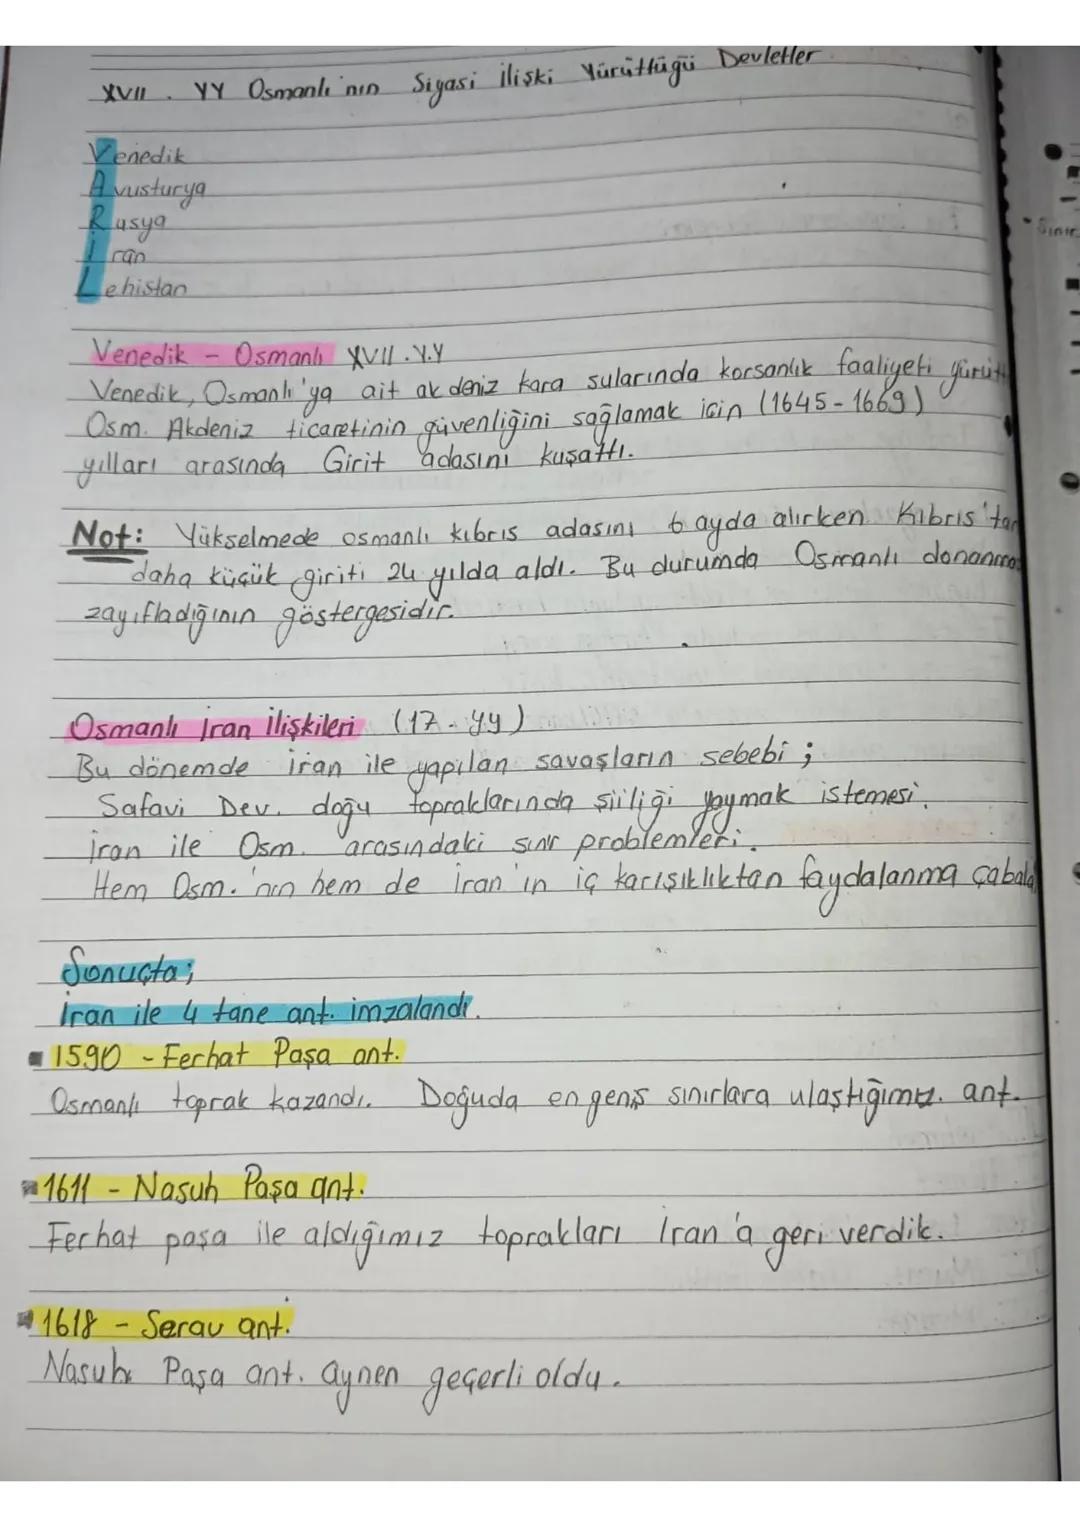 XVII. YY Osmanlı'nın Siyasi ilişki Yürüttüğü Devletler
Venedik
Avusturya
Rusya
İran
Lehistan
Venedik - Osmanlı XVII.Y.Y
Venedik, Osmanlı'ya ait akdeniz kara sularında korsanlık faaliyeti yürütt
Osm. Akdeniz ticaretinin güvenliğini sağlamak için (1645-1669)
yılları arasında Girit adasını kuşattı.
Not: Yükselmede osmanlı kıbrıs adasını 6 ayda alırken Kıbrıs'tan
daha küçük giriti 24 yılda aldı. Bu durumda Osmanlı donanma
zayıfladığının göstergesidir.
Osmanlı İran İlişkileri (17. yy)
Bu dönemde İran ile yapılan savaşların sebebi ;
Safavi Dev. doğu topraklarında şiiliği yaymak istemesi.
İran ile Osm. arasındaki sınır problemleri.
Hem Osm.'nın hem de İran'ın iç karışıklıktan faydalanma çabala
Sonuçta;
İran ile 4 tane ant. imzalandı.
1590 - Ferhat Paşa ant.
Osmanlı toprak kazandı. Doğuda en geniş sınırlara ulaştığımız. ant.
1611 - Nasuh Paşa ant.
Ferhat paşa ile aldığımız toprakları İran'a geri verdik.
1618 - Serav ant.
Nasuh Paşa ant. aynen geçerli oldu.
Sınır